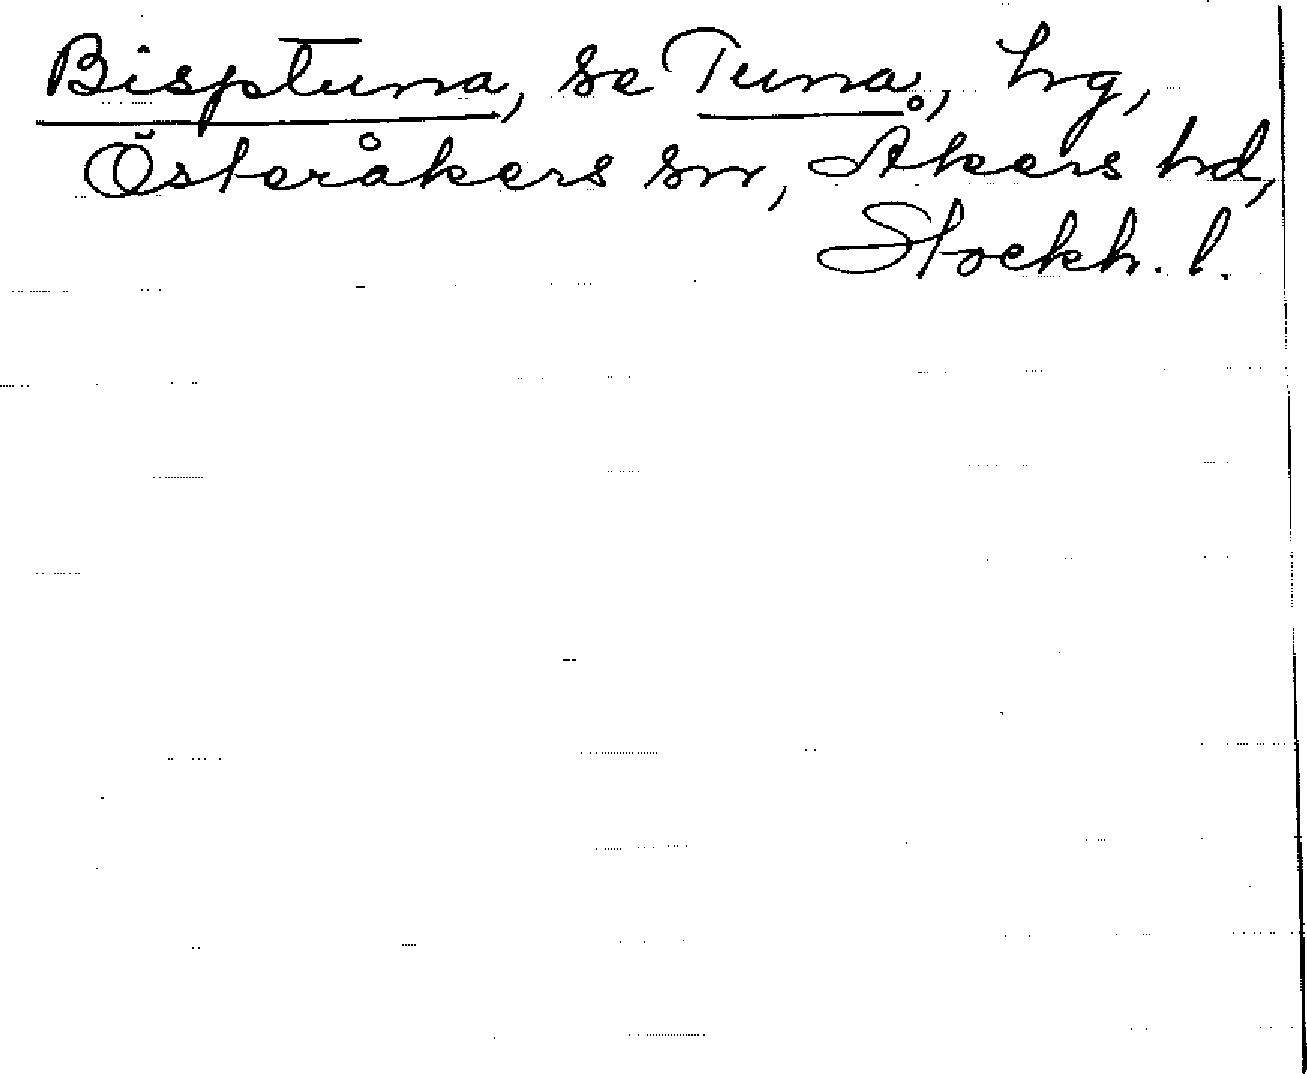 Bisptuna, se Tuna, hg,
Österåkers sn, Åkers hd,
Stockh. l.